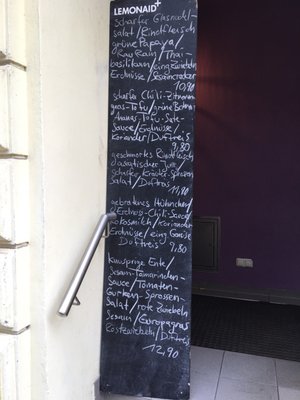 LEMONAID+
scharfer Glasnudel-
salat / Rindfleisch
grüne Papaya /
Thai-
basilikum / eing. Zwiebeln
Erdnüsse / Sesamcracker
10,90
scharfer Chili-Zitronen-
gras-Tofu / grüne Bohnen
Tofu-Sate-
Sauce / Erdnüsse /
Koriander / Duftreis
9,80
geschmortes Rindfleisch
asiatischer Jus
scharfer Kräuter-Sprossen
Salat / Duftreis
11,90
gebratenes Hühnchen /
Erdnuss-Chili-Sauce
Kokosmilch / Koriander
Erdnüsse / eing. Gemüse
Duftreis
9,80
Knusprige Ente /
Sesam-Tamarinden-
Sauce / Tomaten-
Gurken-Sprossen-
Salat / rote Zwiebeln
Sesam /
Röstzwiebeln / Duftreis
12,90